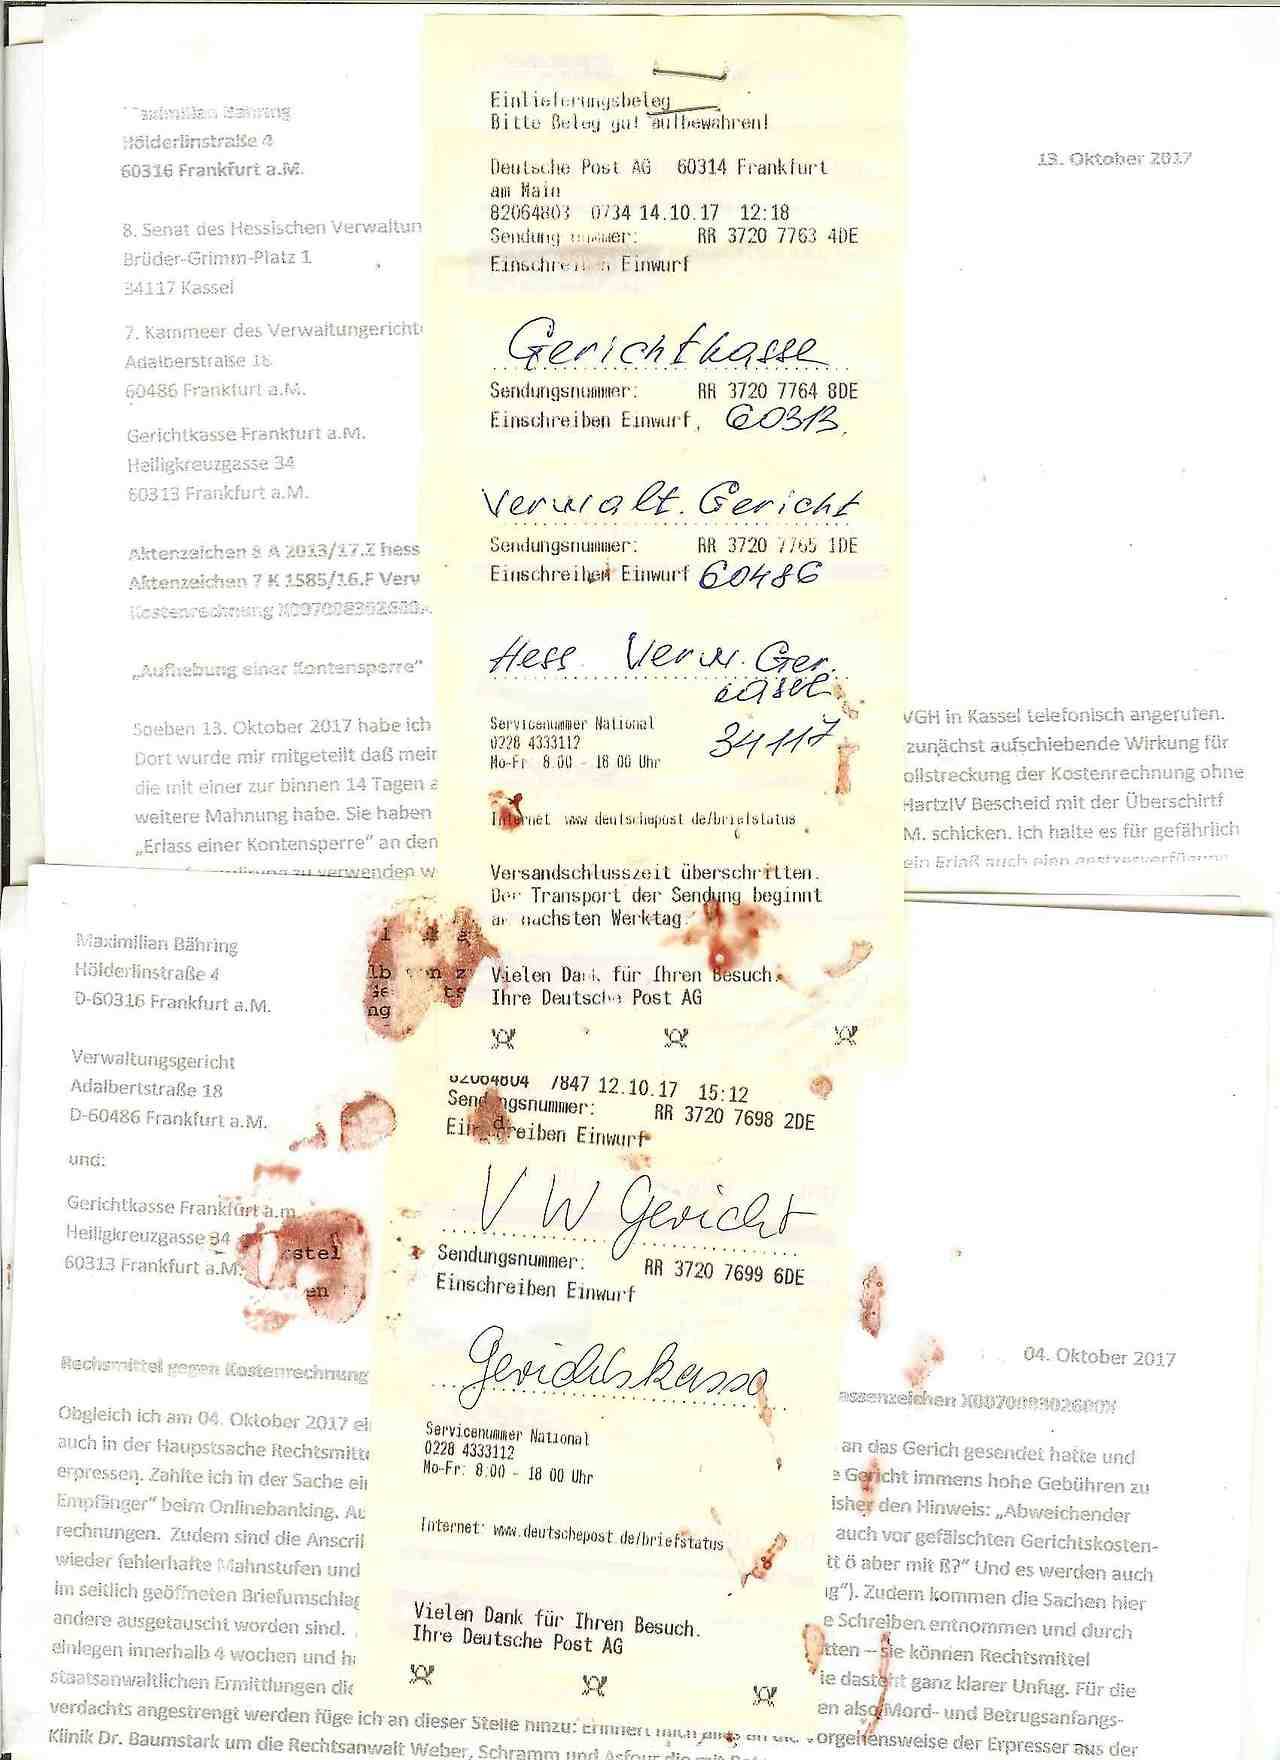 Maximilian Bähring
Hölderlinstraße 4
60316 Frankfurt a.M.
13. Oktober 2017
8. Senat des Hessischen Verwaltun
Brüder-Grimm-Platz 1
34117 Kassel
7. Kammeer des Verwaltungerichts
Adalberstraße 18
60486 Frankfurt a.M.
Gerichtkasse Frankfurt a.M.
Heiligkreuzgasse 34
60313 Frankfurt a.M.
Aktenzeichen 8 A 2013/17.Z hess
Aktenzeichen 7 K 1585/16.F Verv
Kostenrechnung
„Aufhebung einer Kontensperre“
Soeben 13. Oktober 2017 habe ich
Dort wurde mir mitgeteilt daß mein
die mit einer zur binnen 14 Tagen a
weitere Mahnung habe. Sie haben
„Erlass einer Kontensperre“ an den
zu verwenden w
VGH in Kassel telefonisch angerufen.
zunächst aufschiebende Wirkung für
ollstreckung der Kostenrechnung ohne
HartzIV Bescheid mit der Überschirft
M. schicken. Ich halte es für gefährlich
ein Erlaß auch eien
Einlieferungsbeleg
Bitte Beleg gut aufbewahren!
Deutsche Post AG 60314 Frankfurt
am Main
82064803 0734 14.10.17 12:18
Sendungsnummer: RR 3720 7763 4DE
Einschreiben Einwurf
Gerichtkasse
Sendungsnummer: RR 3720 7764 8DE
Einschreiben Einwurf, 60313
Verwalt. Gericht
Sendungsnummer: RR 3720 7765 1DE
Einschreiben Einwurf 60486
Hess. Verw. Ger.
Kasel
34117
Servicenummer National
0228 4333112
Mo-Fr 8.00 - 18 00 Uhr
Internet www deutschepost de/briefstatus
Versandschlusszeit überschritten.
Der Transport der Sendung beginnt
am nächsten Werktag.
Vielen Dank für Ihren Besuch.
Ihre Deutsche Post AG
82064804 7847 12.10.17 15:12
Sendungsnummer: RR 3720 7698 2DE
Einschreiben Einwurf
V W Gericht
Sendungsnummer: RR 3720 7699 6DE
Einschreiben Einwurf
Gerichtskasse
Servicenummer National
0228 4333112
Mo-Fr: 8:00 - 18 00 Uhr
Internet: www.deutschepost.de/briefstatus
Vielen Dank für Ihren Besuch.
Ihre Deutsche Post AG
Maximilian Bähring
Hölderlinstraße 4
D-60316 Frankfurt a.M.
Verwaltungsgericht
Adalbertstraße 18
D-60486 Frankfurt a.M.
und:
Gerichtkasse Frankfurt a.m.
Heiligkreuzgasse 34
60313 Frankfurt a.M.
stel
en
04. Oktober 2017
Rechsmittel gegen Kostenrechnung
assenzeichen
Obgleich ich am 04. Oktober 2017 ei
auch in der Haupstsache Rechtsmitte
erpressen. Zahlte ich in der Sache ein
Empfänger“ beim Onlinebanking. Au
rechnungen. Zudem sind die Anscrif
wieder fehlerhafte Mahnstufen und
im seitlich geöffneten Briefumschlag
andere ausgetauscht worden sind.
einlegen innerhalb 4 wochen und h
staatsanwaltlichen Ermittlungen die
verdachts angestrengt werden füge ich an dieser Stelle hinzu: Erinnert mich alles an die Vorgehensweise der Erpresser aus der
Klinik Dr. Baumstark um die Rechtsanwalt Weber, Schramm und Asfour die mit
an das Gerich gesendet hatte und
e Gericht immens hohe Gebühren zu
isher den Hinweis: „Abweichender
auch vor gefälschten Gerichtskosten-
tt ö aber mit ß?“ Und es werden auch
ig“). Zudem kommen die Sachen hier
e Schreiben entnommen und durch
tten – sie können Rechtsmittel
ie dasteht ganz klarer Unfug. Für die
en also Mord- und Betrugsanfangs-